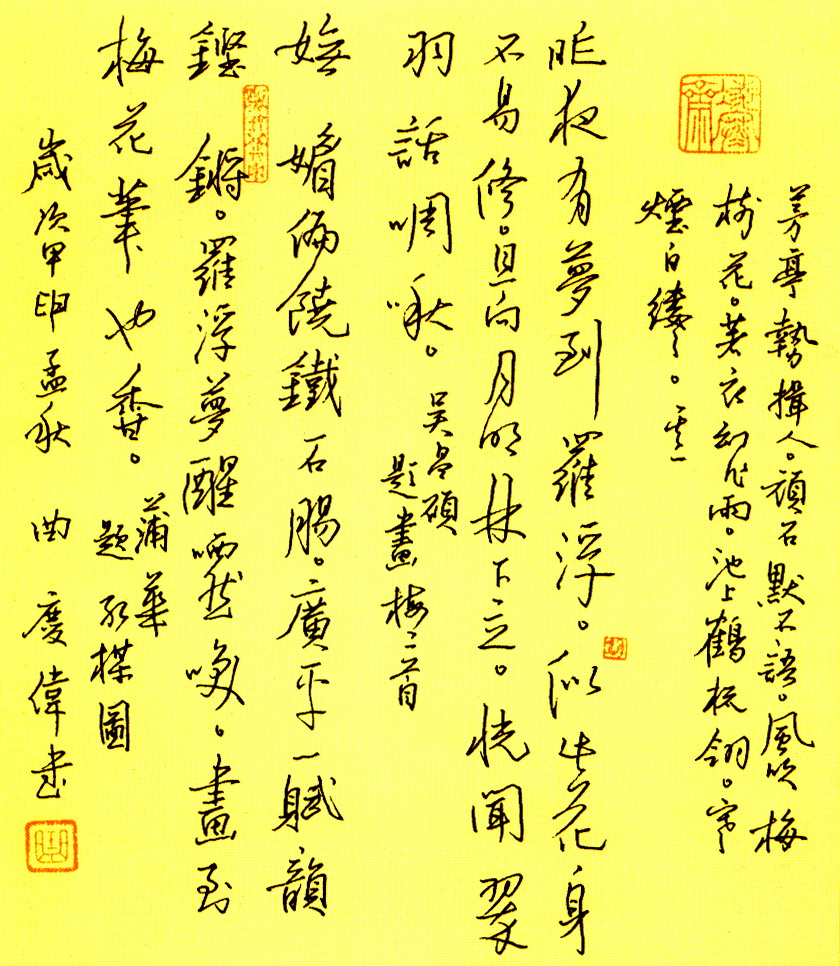 茅亭勢揖人。頑石默不語。風吹梅
樹花。著衣幻作雨。池上鶴梳翎。寒
煙白縷々。其一
昨夜有夢到羅浮。似此花身
不易修。且向月明林下立。恍聞翠
羽話啁啾。吳昌碩
題畫梅二首
嫵媚偏饒鐵石腸。廣平一賦韻
鏗鏘。羅浮夢醒哂然咲。畫到
梅花筆也香。蒲華
題紅楳圖
歲次甲申孟秋 曲慶偉書